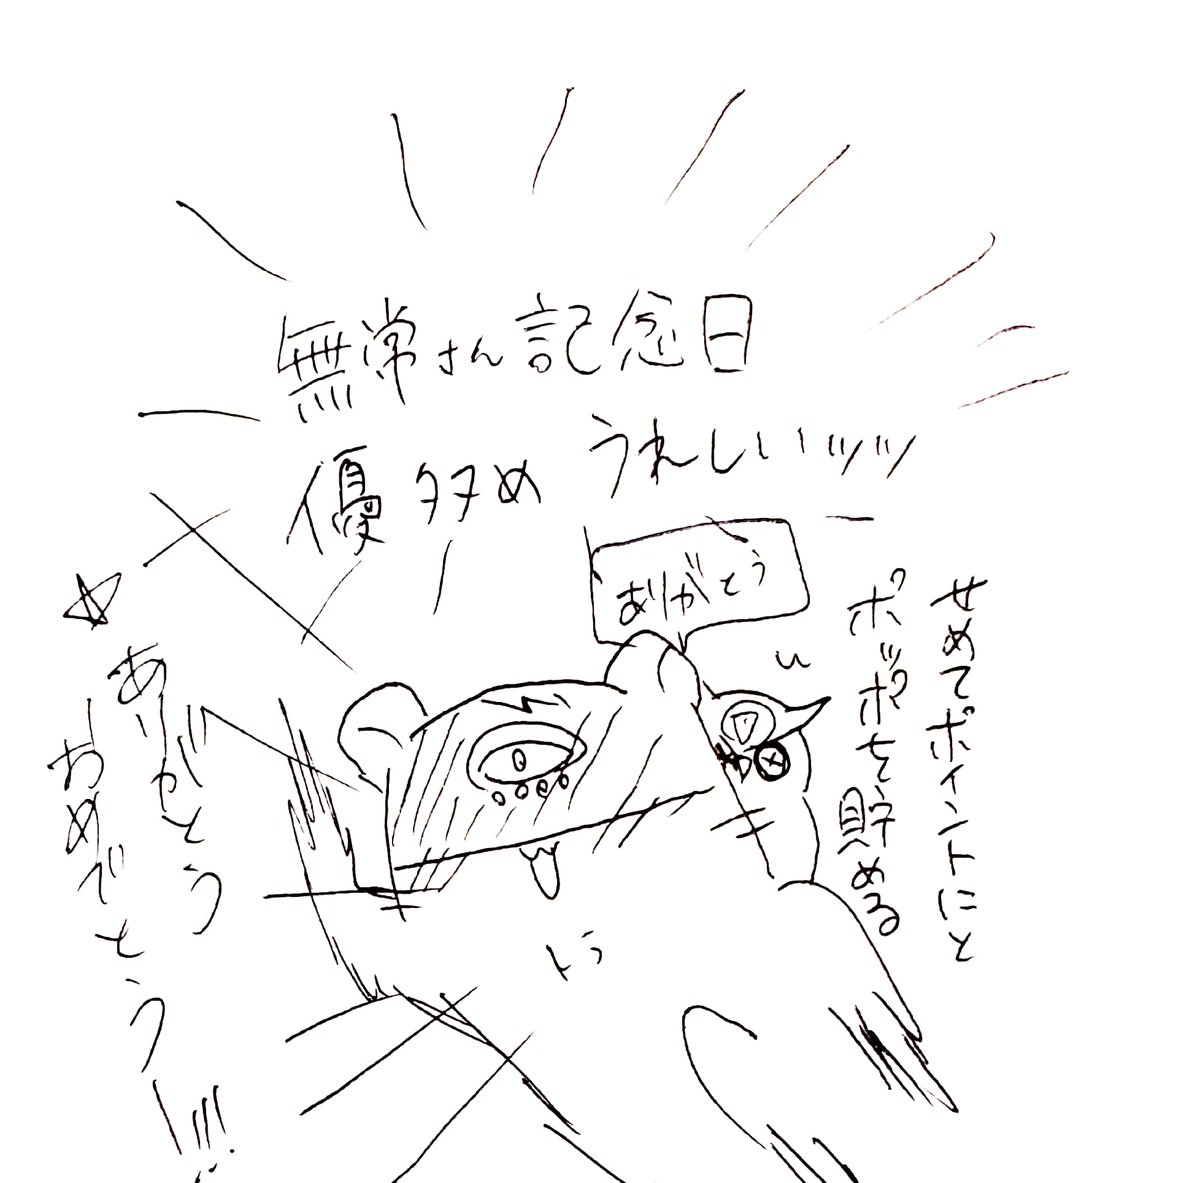 無常さん記念日
優タヌめ うれしいッッ
ありがとう
せめてポイントにと
ポッポを貯める
☆ありがとう
おめでとうー!!!
トラ